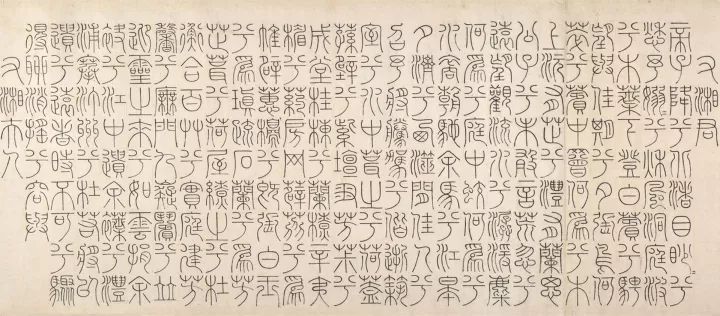 右湘君
帝子降兮北渚目眇眇兮
愁予嫋嫋兮秋風洞庭波
兮木葉下登白薠兮騁
望與佳期兮夕張鳥何
萃兮薠中罾何為兮木
上沅有芷兮澧有蘭思
公子兮未敢言荒忽兮
遠望觀流水兮潺湲麋
何為兮庭中蛟何為兮
水裔朝馳余馬兮江皋
夕濟兮西澨聞佳人兮
召予將騰駕兮偕逝築
室兮水中葺之兮荷蓋
蓀壁兮紫壇匊芳椒兮
成堂桂棟兮蘭橑辛夷
楣兮葯房网薜荔兮為
帷擗蕙櫋兮既張白玉
兮為瑱疏石蘭兮為芳
芷葺兮荷屋繚之兮杜
衡合百草兮實庭建芳
馨兮廡門九嶷繽兮並
迎靈之來兮如雲捐余
袂兮江中遺余褋兮澧
浦搴汀洲兮杜若將以
遺兮遠者時不可兮驟
得聊逍遙兮容與
右湘夫人